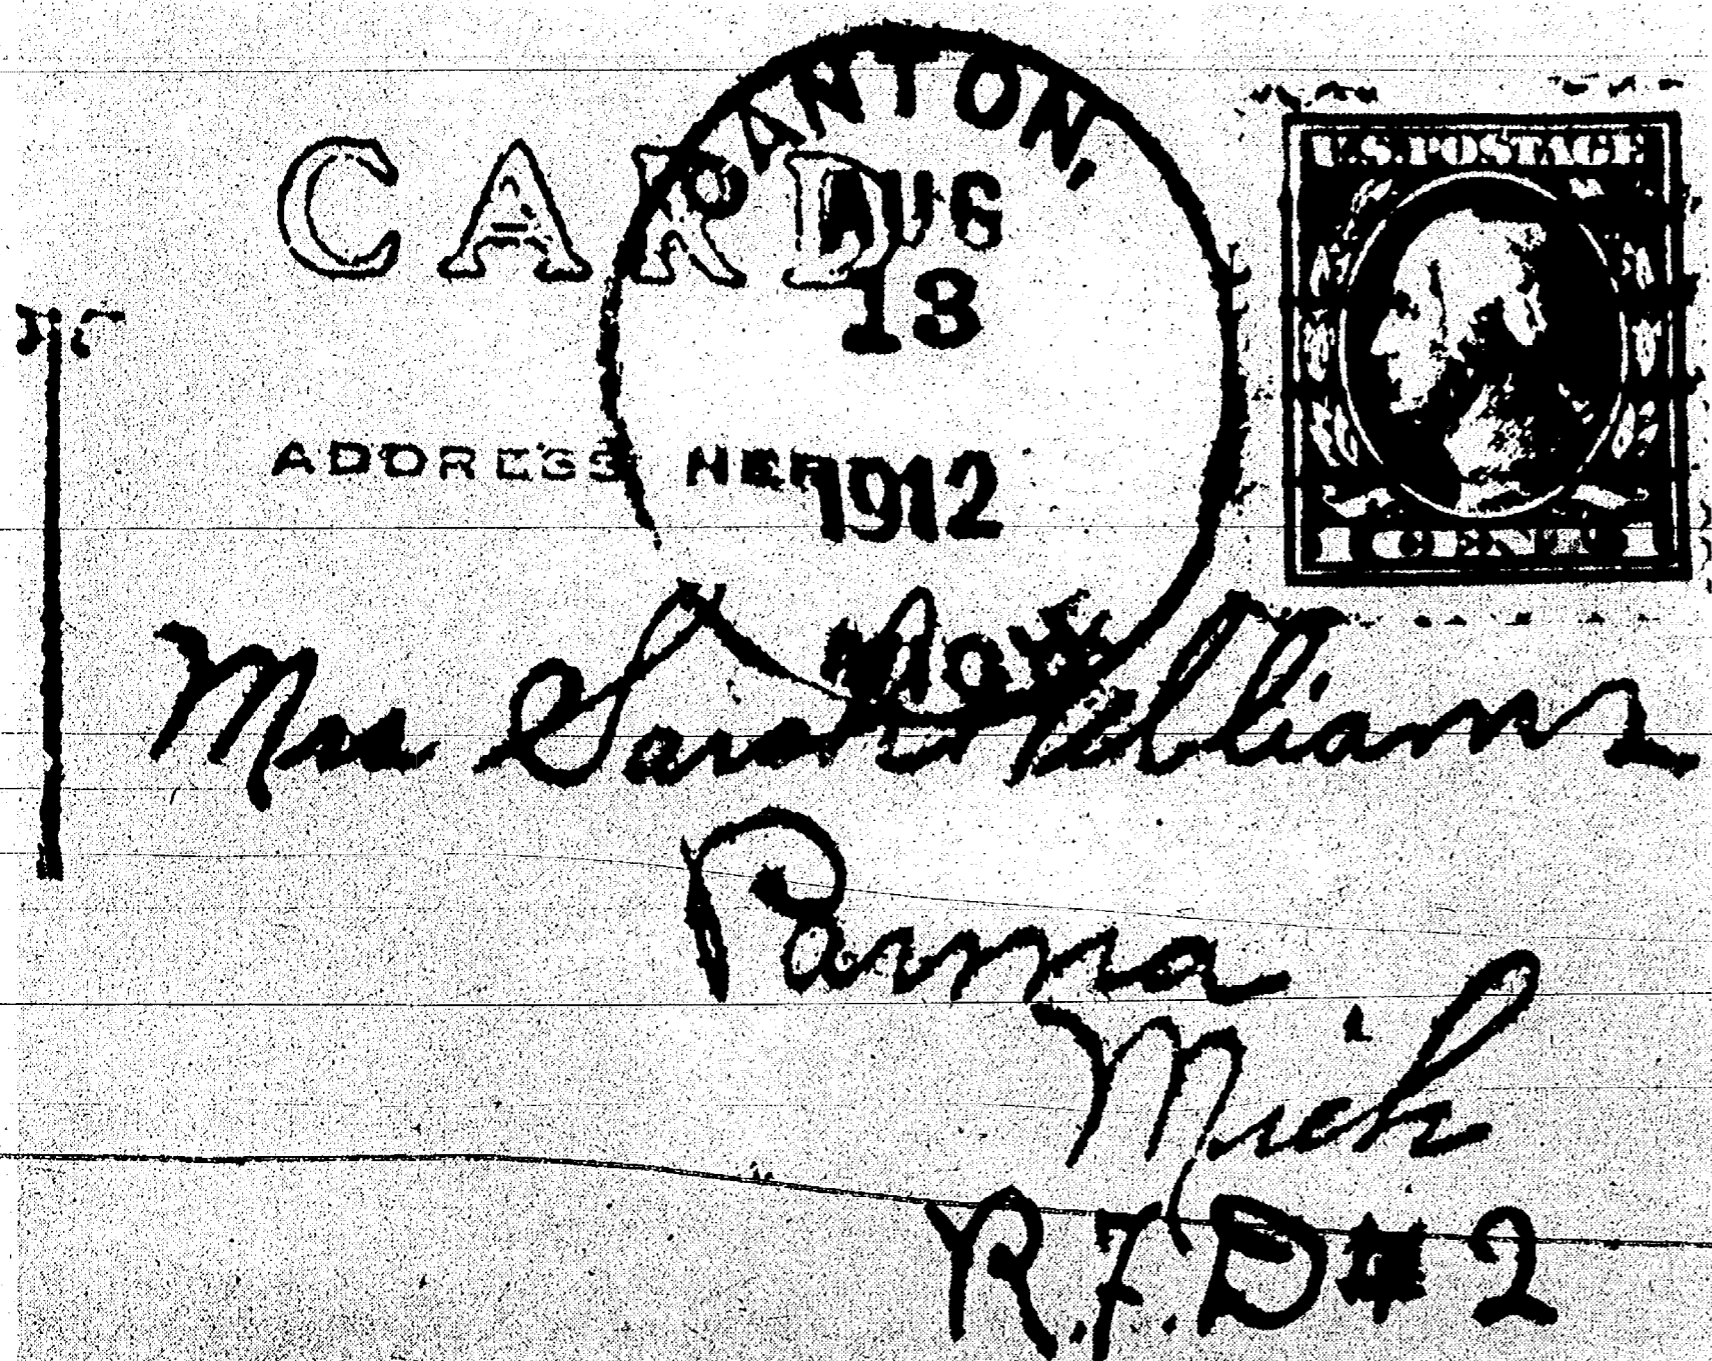 CARD
ANTON,
AUG
13
1912
U.S. POSTAGE
ADDRESS HER
Mrs Sarah Williams
Parma
Mich
R.F.D # 2